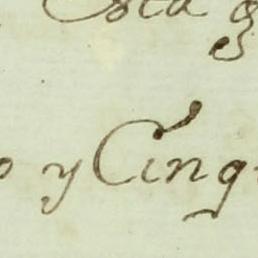 Esta q
o y Cinq